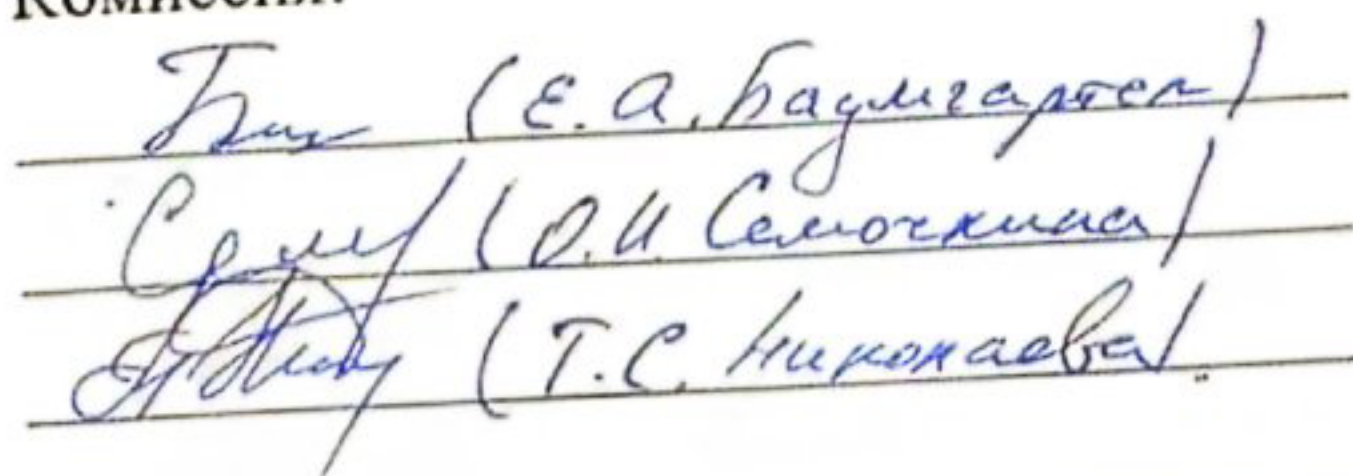 Комиссия:
(Е. А. Баумгартен)
(О.И. Семочкина)
(Т.С. Николаева)